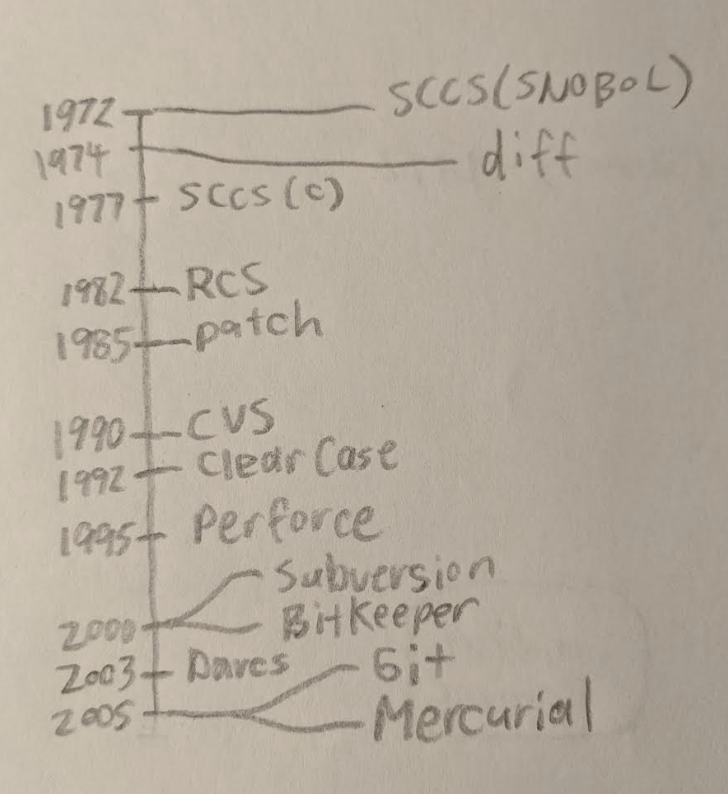 1972 SCCS(SNOBOL)
1974 diff
1977 SCCS(C)
1982 RCS
1985 patch
1990 CVS
1992 ClearCase
1995 Perforce
Subversion
2000 BitKeeper
2003 Darcs Git
2005 Mercurial